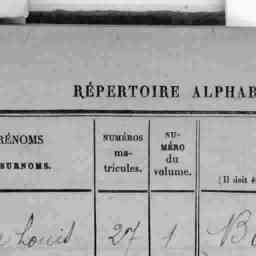 RÉPERTOIRE ALPHAB
RÉNOMS
SURNOMS.
NUMÉROS
ma-
tricules.
NU-
MÉRO
du
volume.
(Il doit ê
Louis 27 1